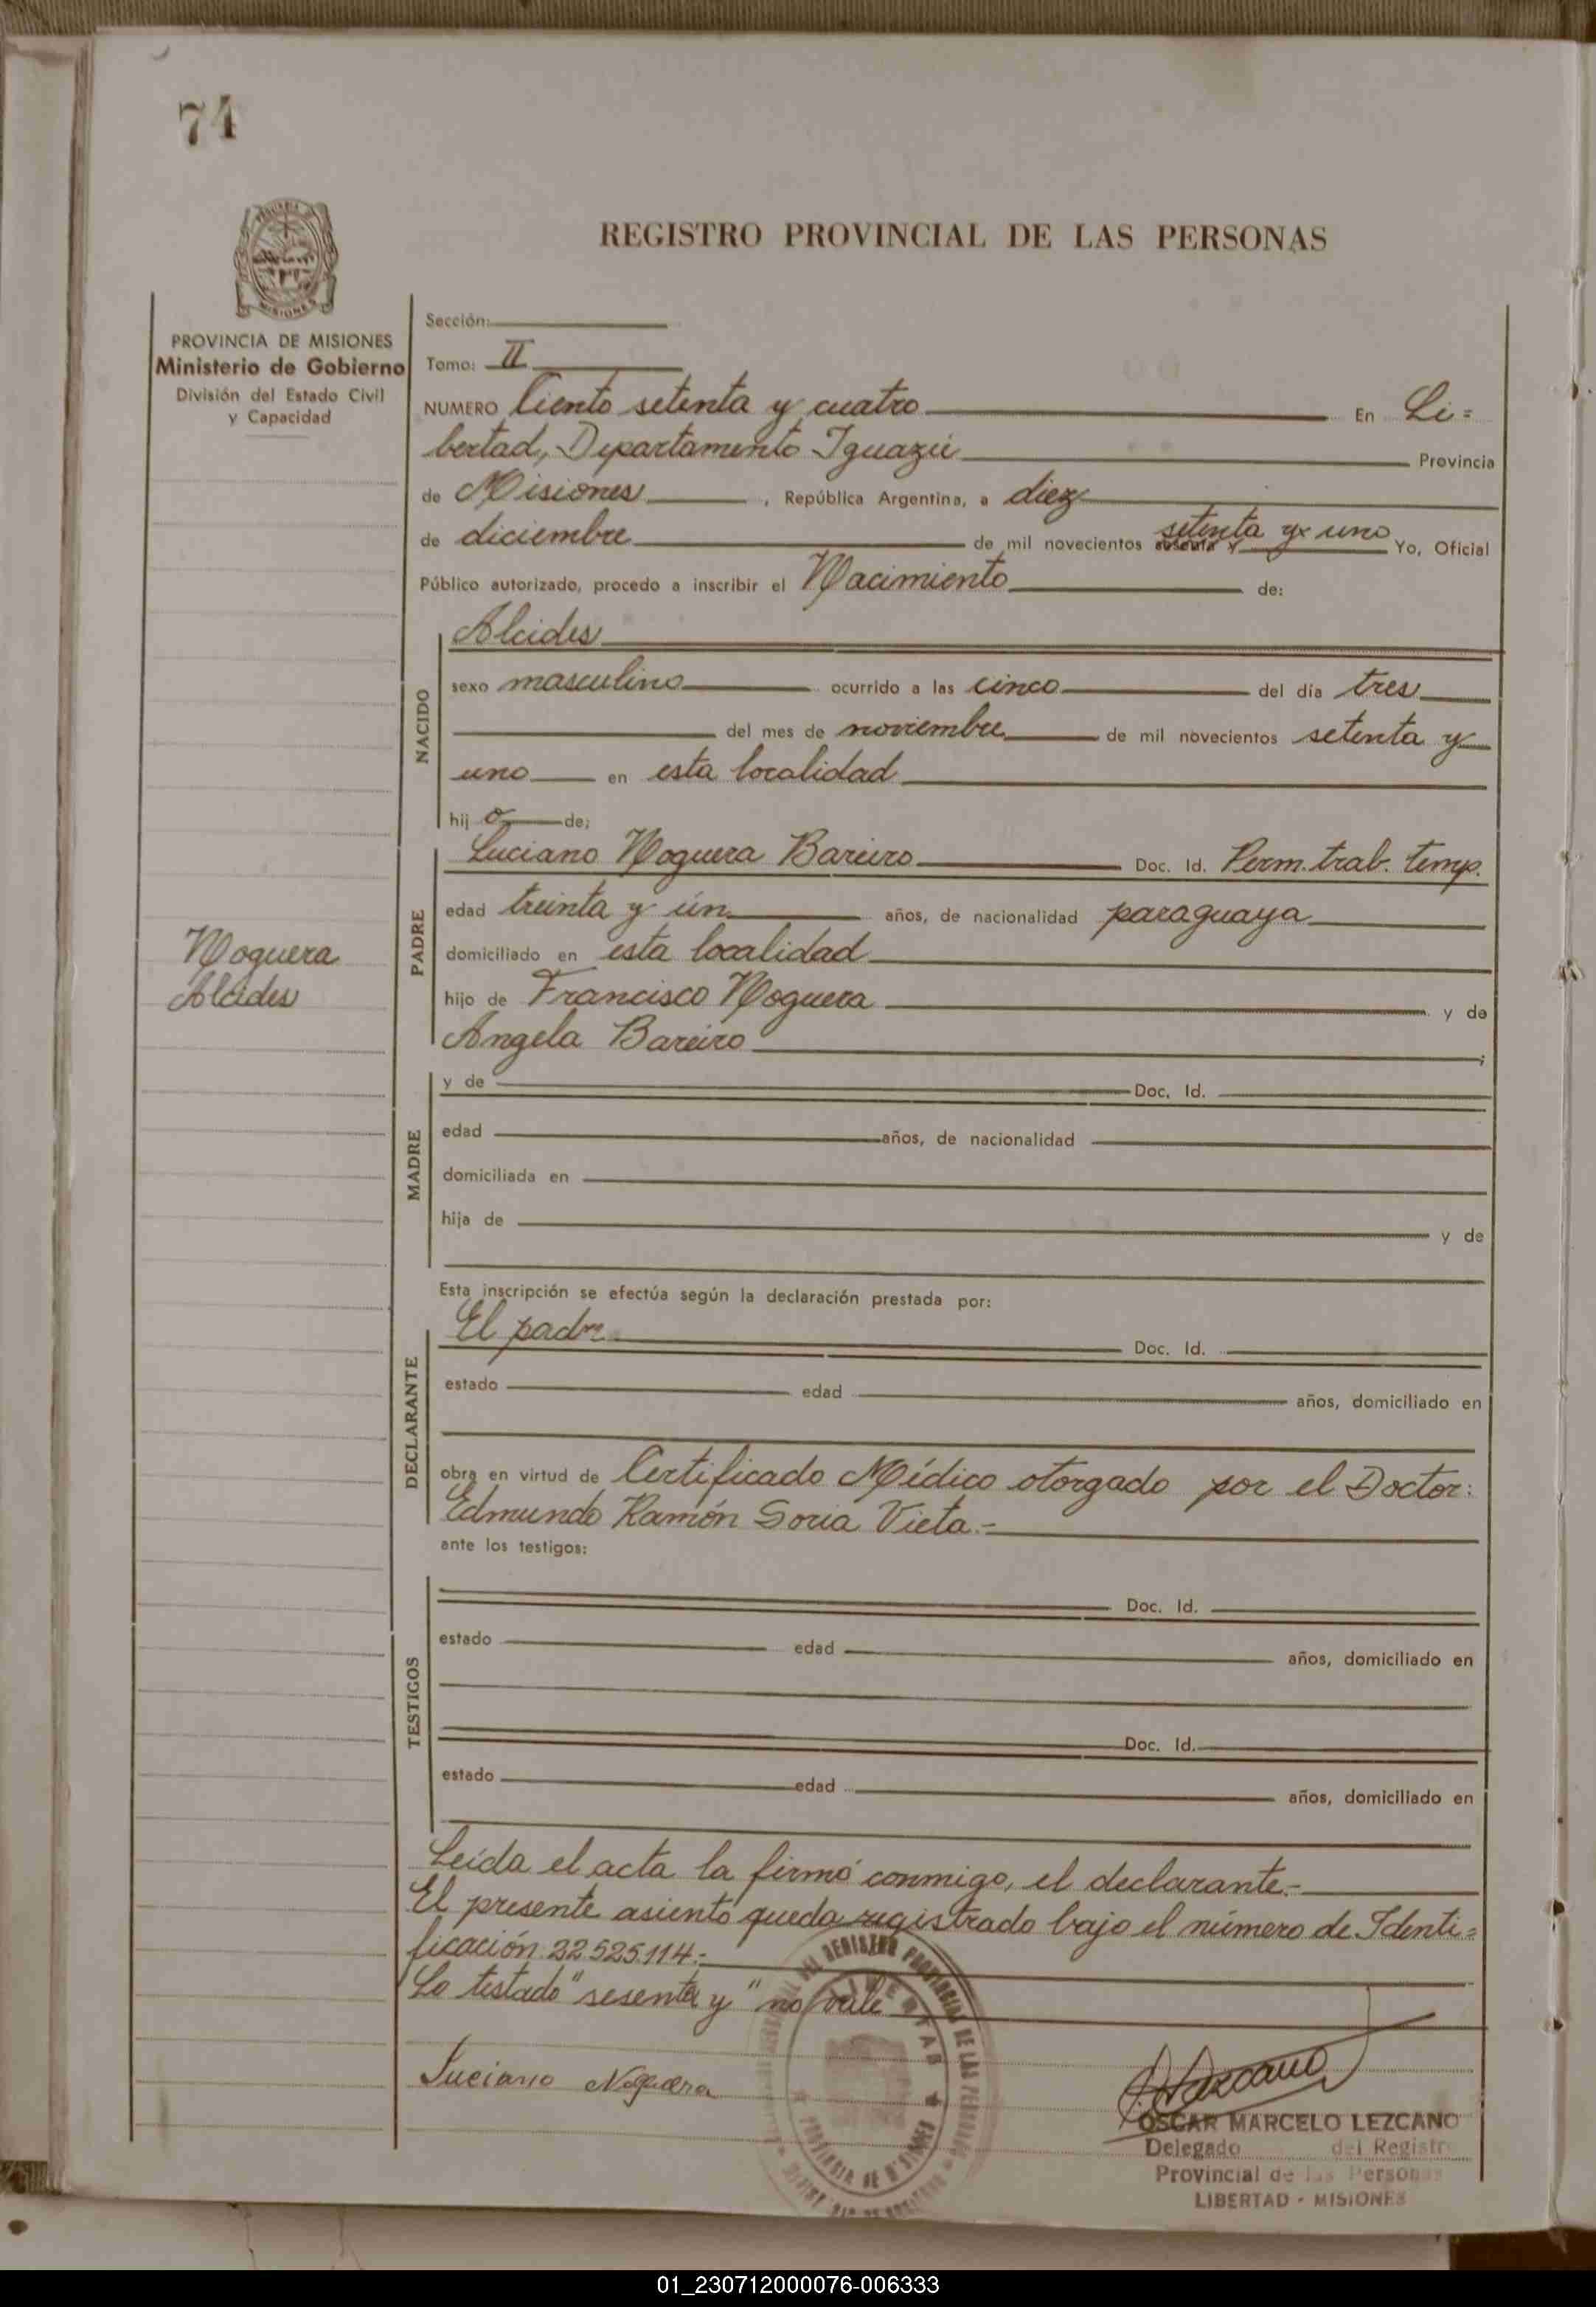 74
REGISTRO PROVINCIAL DE LAS PERSONAS
MISIONES
PROVINCIA DE MISIONES
Ministerio de Gobierno
División del Estado Civil
y Capacidad
Sección:
Tomo: II
NUMERO Ciento setenta y cuatro En Li=
bertad, Departamento Iguazú Provincia
de Misiones, República Argentina, a diez
de diciembre de mil novecientos sesenta y setenta y uno Yo, Oficial
Público autorizado, procedo a inscribir el Nacimiento de:
NACIDO
Alcides
sexo masculino ocurrido a las cinco del día tres
del mes de noviembre de mil novecientos setenta y
uno en esta localidad
hij o de;
PADRE
Luciano Noguera Bareiro Doc. Id. Perm. trab. temp.
edad treinta y ún años, de nacionalidad paraguaya
domiciliado en esta localidad
hijo de Francisco Noguera y de
Angela Bareiro ;
Noguera
Alcides
MADRE
y de Doc. Id.
edad años, de nacionalidad
domiciliada en
hija de y de
Esta inscripción se efectúa según la declaración prestada por:
DECLARANTE
El padre Doc. Id.
estado edad años, domiciliado en
obra en virtud de Certificado Médico otorgado por el Doctor:
Edmundo Ramón Soria Vieta.-
ante los testigos:
TESTIGOS
Doc. Id.
estado edad años, domiciliado en
Doc. Id.
estado edad años, domiciliado en
Leída el acta la firmó conmigo, el declarante.-
El presente asiento queda registrado bajo el número de Identi=
ficación 22.525.114.-
Lo testado "sesenta y" no vale
Luciano Noguera
REGISTRO PROVINCIAL DE LAS PERSONAS
LIBERTAD
PROVINCIA DE MISIONES
OSCAR MARCELO LEZCANO
Delegado del Registro
Provincial de las Personas
LIBERTAD - MISIONES
01_230712000076-006333